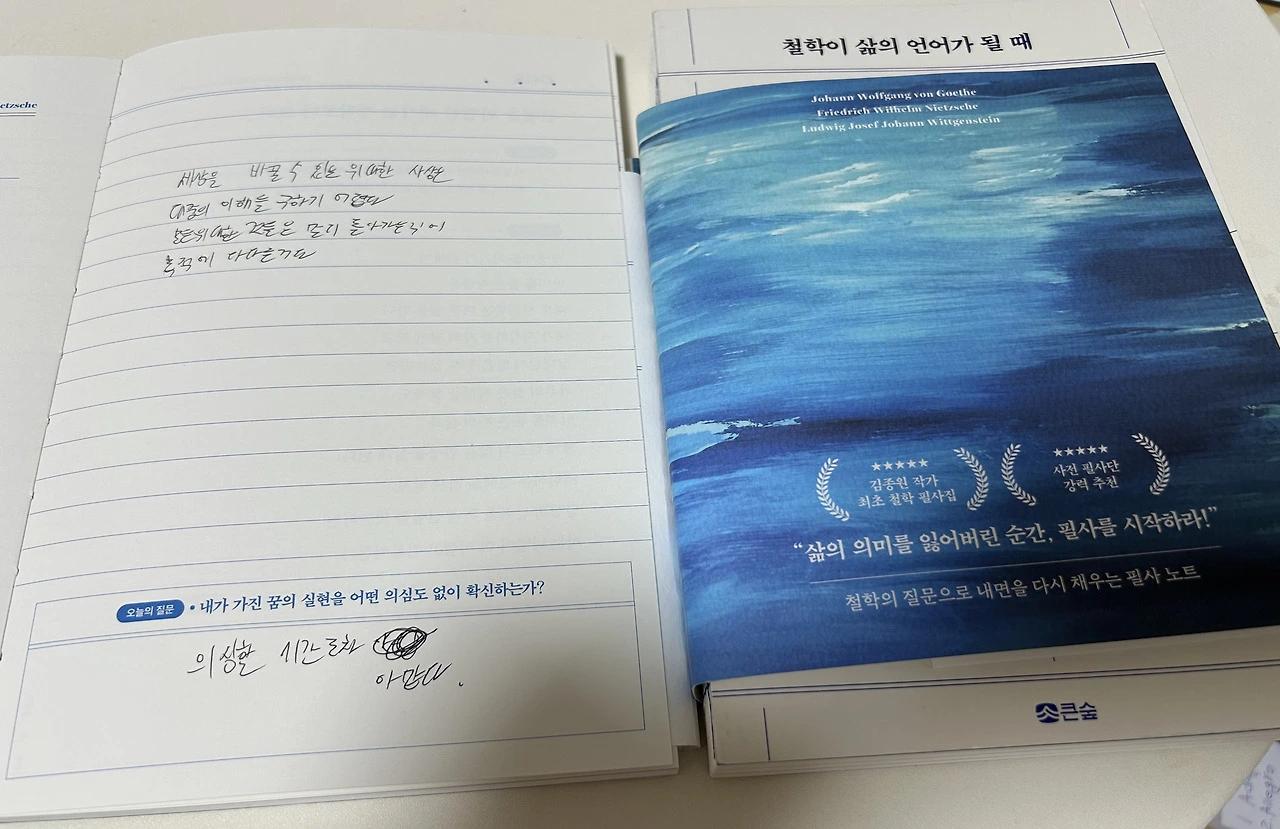 etzsche
세상을 바꿀 수 있는 위대한 사상은
대중의 이해를 구하기 어렵다
모든 위대한 것들은 멀리 돌아가는 길이
목적에 다다른다
오늘의 질문 • 내가 가진 꿈의 실현을 어떤 의심도 없이 확신하는가?
의심할 시간조차
아깝다.
철학이 삶의 언어가 될 때
Johann Wolfgang von Goethe
Friedrich Wilhelm Nietzsche
Ludwig Josef Johann Wittgenstein
김종원 작가
최초 철학 필사집
사전 필사단
강력 추천
“삶의 의미를 잃어버린 순간, 필사를 시작하라!”
철학의 질문으로 내면을 다시 채우는 필사 노트
큰숲